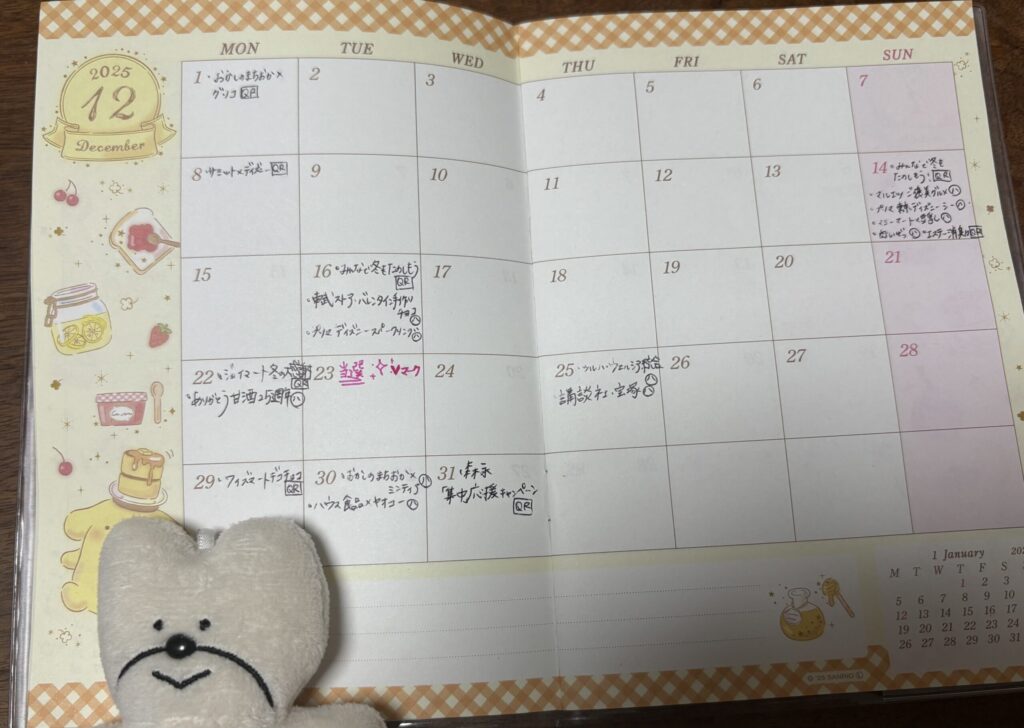 2025
12
December
MON TUE WED THU FRI SAT SUN
1 ・おかしのまちおか×
グリコ QR
2
3
4
5
6
7
8 ・サミット×ディズニー QR
9
10
11
12
13
14 ・みんなで冬を
たのしもう! QR
・マルエツ ご褒美グルメ ハ
・プリマ 東京ディズニーシー ハ
ハ
ハ QR
15
16 ・みんなで冬をたのしもう
QR
・東武ストア・バレンタイン手作り
チョコ
ハ
・プリマ ディズニースパークリング ハ
17
18
19
20
21
22 ・ジョイマート冬の
QR
・ありがとう甘酒25周年 ハ
23 当選 ♥マーク
24
25 ・ツルハ・ウェルシア
ハ
講談社・宝塚 ハ
26
27
28
29 ・フィズマートデコチョコ
QR
30 ・おかしのまちおか×
ミンティア ハ
・ハウス食品×ヤオコー ハ
31 ・森永
「年中応援キャンペーン
QR
1 January
M T W T F S
1 2 3
5 6 7 8 9 10
12 13 14 15 16 17
19 20 21 22 23 24
26 27 28 29 30 31
© '25 SANRIO Ⓛ